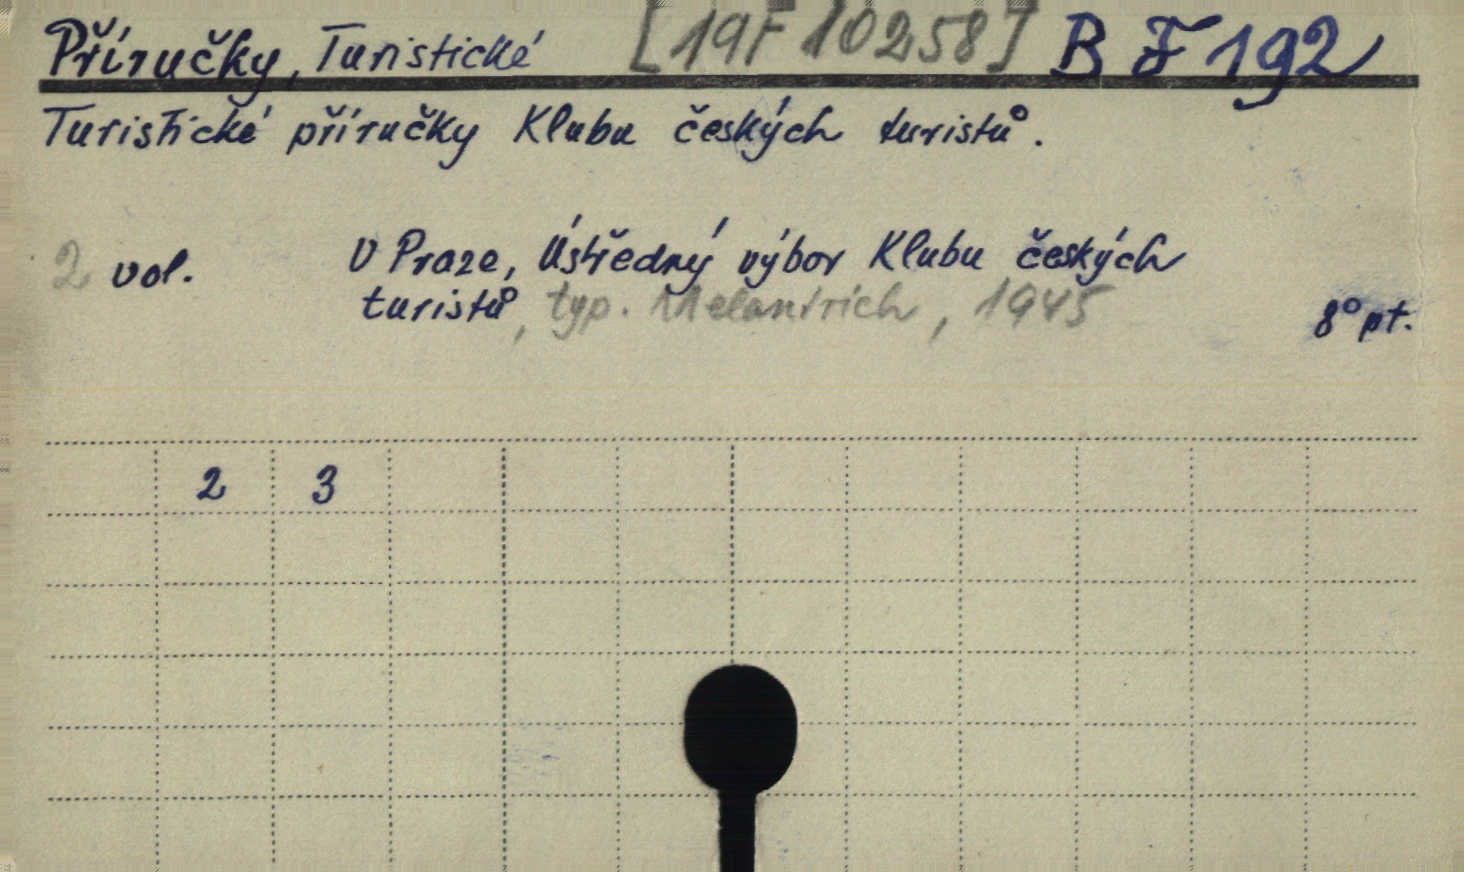 Příručky, Turistické [19F10258] B F 192
Turistické příručky Klubu českých turistů.
2 vol. V Praze, Ústředný výbor Klubu českých
turistů, typ. Melantrich, 1945 8° pt.
2 3